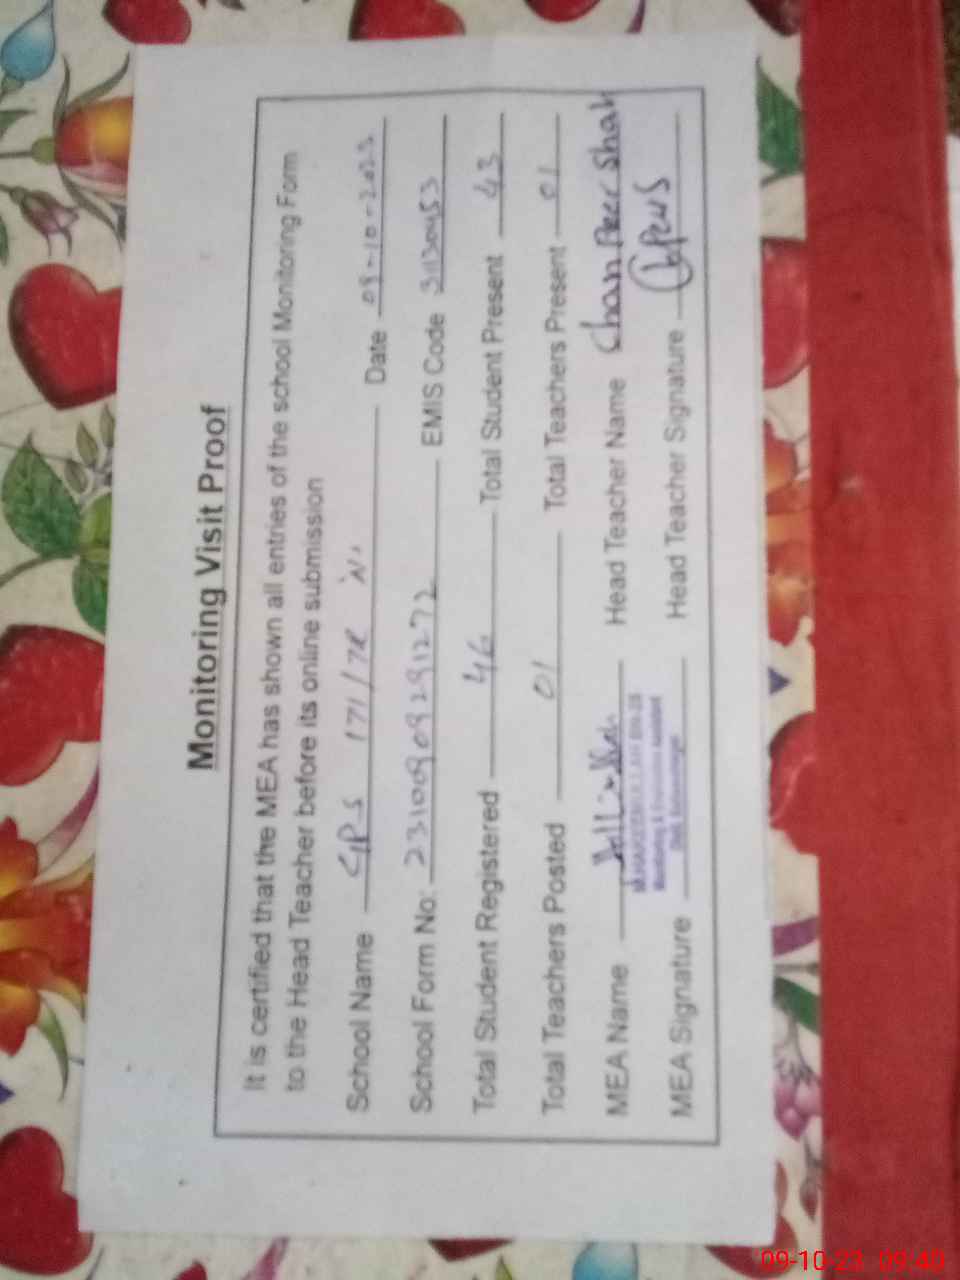 Monitoring Visit Proof
It is certified that the MEA has shown all entries of the school Monitoring Form
to the Head Teacher before its online submission
School Name GPS 171/7R Date 09-10-2023
School Form No: 23100909291272 EMIS Code 31130453
Total Student Registered 46 Total Student Present 43
Total Teachers Posted 01 Total Teachers Present 01
MEA Name Head Teacher Name Chan Peer Shah
Monitoring & Evaluation Assistant
MEA Signature Head Teacher Signature
09-10-23 09:40